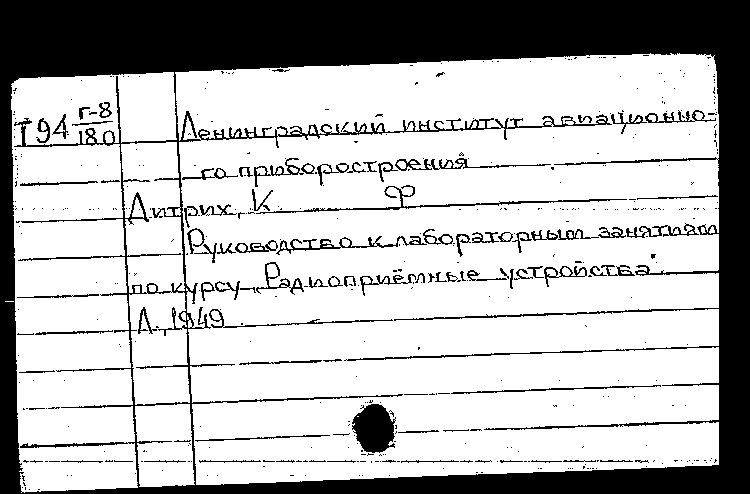 Т94 Г-8/180
Ленинградский институт авиационно-
го приборостроения
Дитрих, К. Ф
Руководство к лабораторным занятиям
по курсу „Радиоприёмные устройства".
Л., 1949